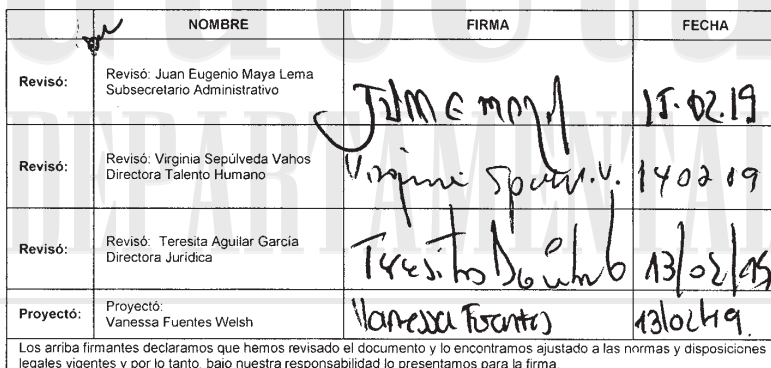 NOMBRE FIRMA FECHA
Revisó: Revisó: Juan Eugenio Maya Lema
Subsecretario Administrativo
15.02.19
Revisó: Revisó: Virginia Sepúlveda Vahos
Directora Talento Humano
Virginia 14 02 19
Revisó: Revisó: Teresita Aguilar García
Directora Jurídica
Teresita 13/02/19
Proyectó: Proyectó:
Vanessa Fuentes Welsh
Vanessa Fuentes 13/02/19.
Los arriba firmantes declaramos que hemos revisado el documento y lo encontramos ajustado a las normas y disposiciones
legales vigentes y por lo tanto, bajo nuestra responsabilidad lo presentamos para la firma.
DEPARTAMENTAL